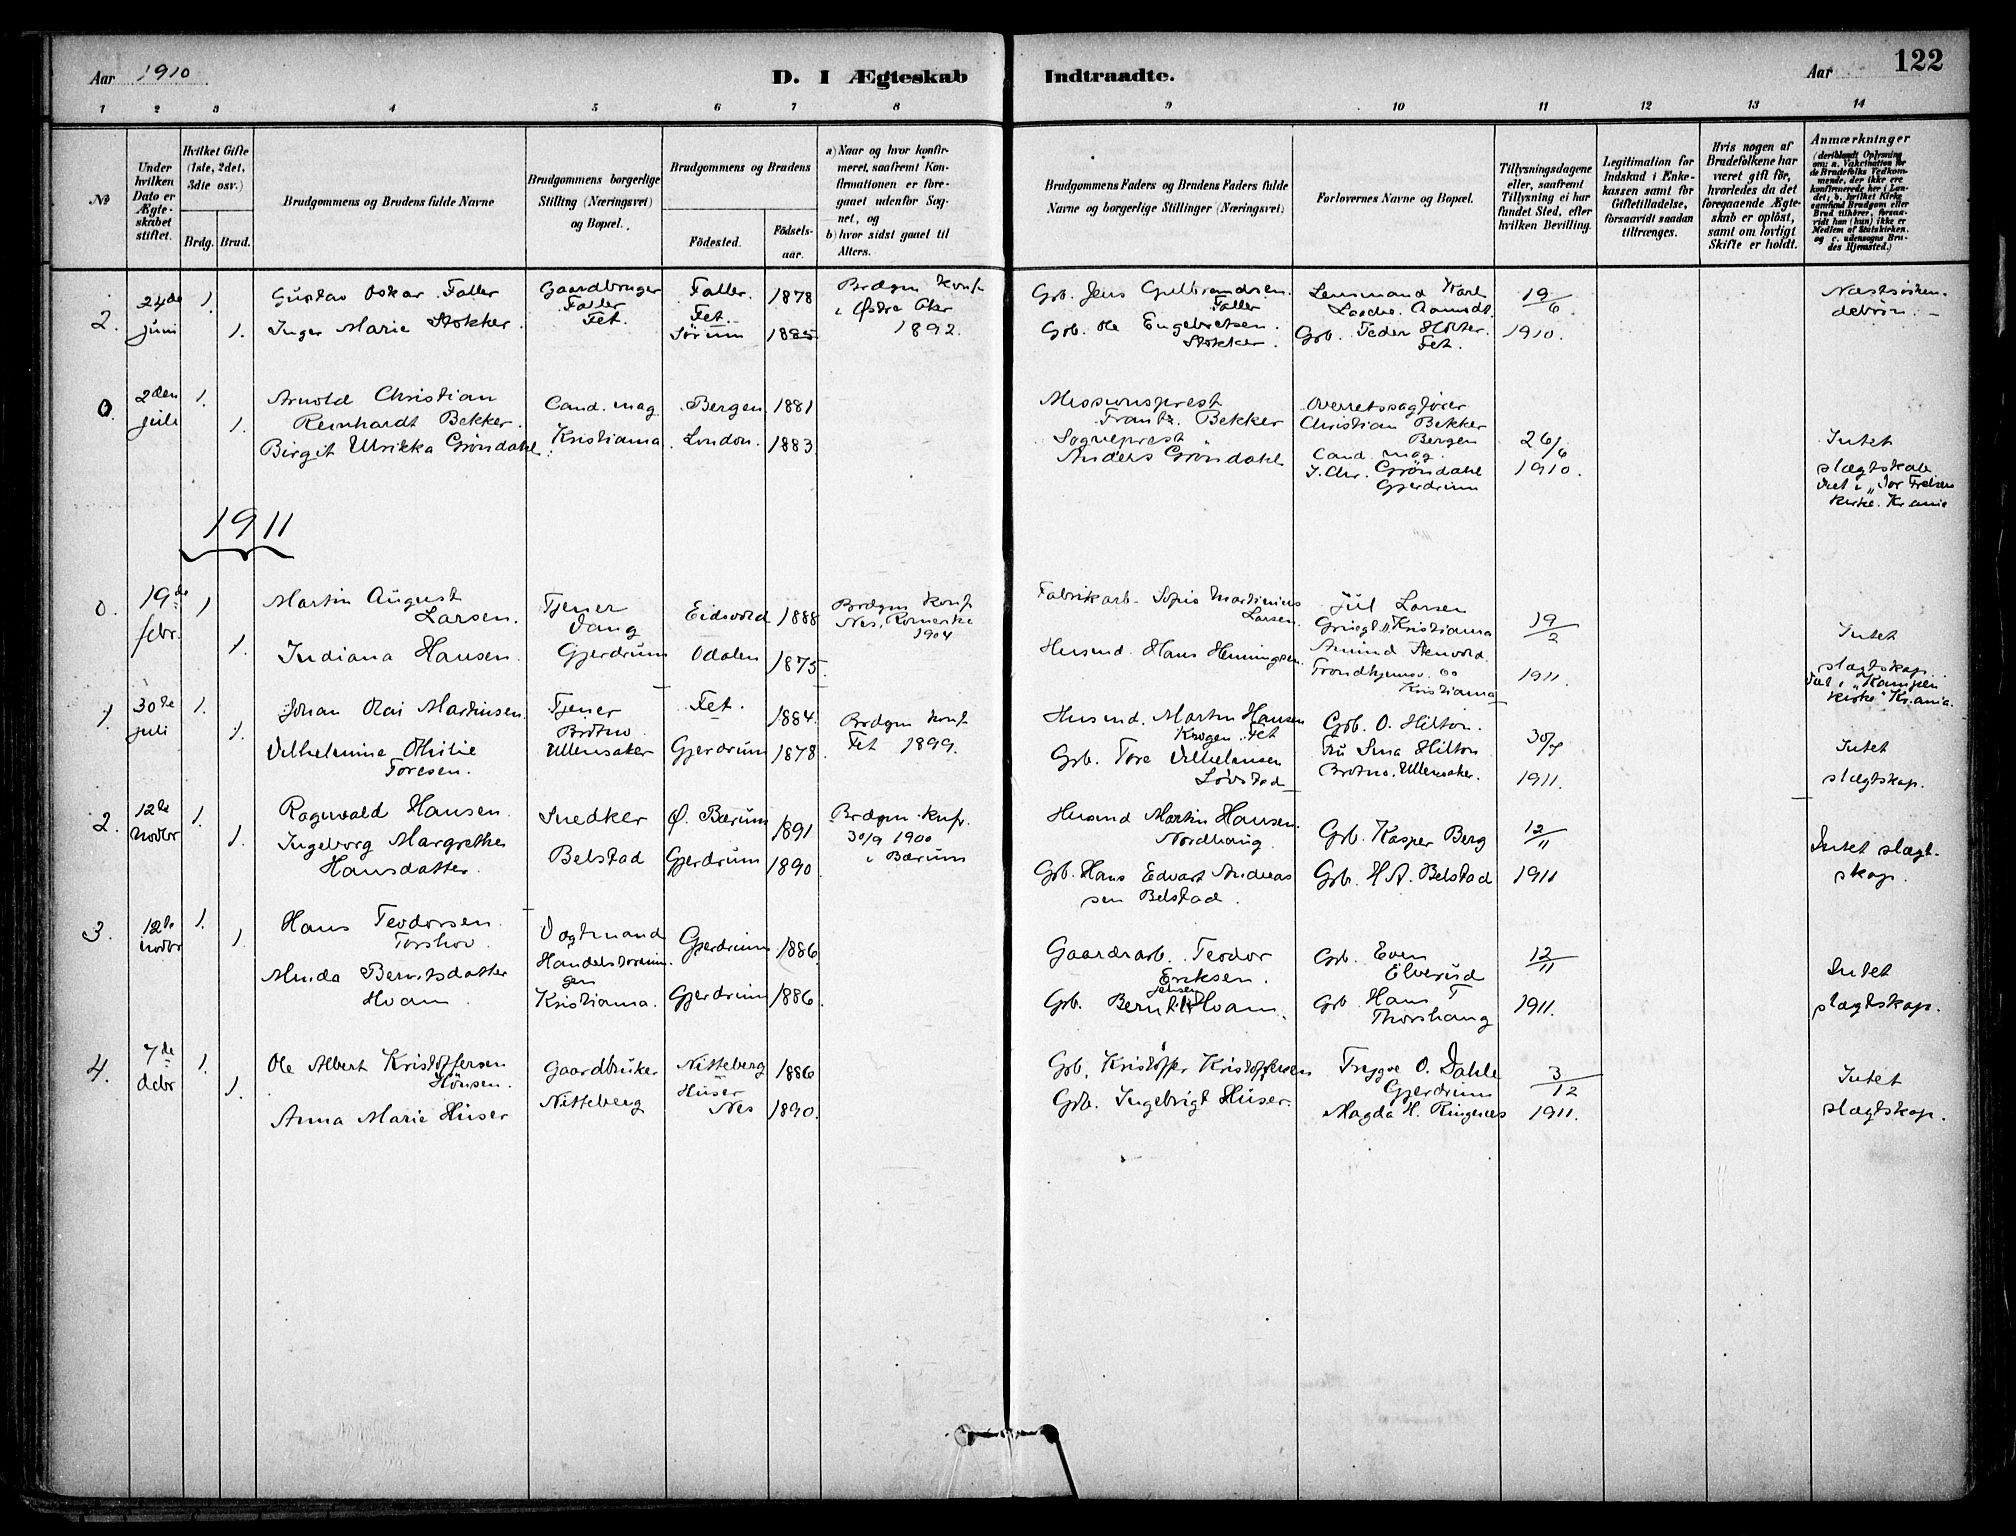 Aar 1910
D. I Ægteskab Indtraadte.
Aar
122
1 2 3 4 5 6 7 8 9 10 11 12 13 14
№
Under hvilken Dato er Ægteskabet stiftet.
Hvilket Gifte (1ste, 2det, 3die osv.)
Brdg. Brud.
Brudgommens og Brudens fulde Navne
Brudgommens borgerlige Stilling (Næringsvei) og Bopæl.
Brudgommens og Brudens
Födested.
Födselsaar.
a) Naar og hvor konfirmeret, saafremt Konfirmationen er foregaaet udenfor Sognet, og
b) hvor sidst gaaet til Alters.
Brudgommens Faders og Brudens Faders fulde Navne og borgerlige Stillinger (Næringsvei)
Forlovernes Navne og Bopæl.
Tillysningsdagene eller, saafremt Tillysning ei har fundet Sted, efter hvilken Bevilling.
Legitimation for Indskud i Enkekassen samt for Giftetilladelse, forsaavidt saadan tiltrænges.
Hvis nogen af Brudefolkene har været gift för, hvorledes da det foregaaende Ægteskab er oplöst, samt om lovligt Skifte er holdt.
Anmærkninger
(deriblandt Oplysning om: a. Vakcination for de Brudefolks Vedkommende, der ikke ere konfirmerede her i Landet; b. hvilket Kirkesamfund Brudgom eller Brud tilhörer, forsaavidt han (hun) ikke er Medlem af Statskirken. og c. udensogns Brudes Hjemsted.)
2. 24de juni 1. 1.
Gustav Oskar Faller
Inger Marie Stokker.
Gaardbruger
Faller
Fet.
Faller.
Fet.
Sörum
1878
1885
Brdgm konf.
i Østre Aker
1892.
Grb. Jens Gulbrandsen.
Faller
Grb. Ole Engebretsen.
Stokker.
Lensmand Karl
Aamodt
Grb. Peder Holter.
Fet.
19/6
1910.
Næstsöskendebörn.
0. 2den juli 1. 1.
Arnold Christian
Reinhardt Bekker.
Birgit Ulrikka Gröndahl.
Cand. mag
Kristiania
Bergen
London.
1881
1883
Missionsprest
Frantz Bekker
Sogneprest
Anders Gröndahl
Overretssagförer
Christian Bekker
Bergen
Cand. mag.
J. Chr. Gröndahl
Gjerdrum
26/6
1910.
Intet
slægtskab.
Viet i "Vor Frelsers
kirke. Kr.ania
1911
0. 19de febr. 1 1.
Martin August
Larsen.
Indiana Hansen.
Tjener
Vang
Gjerdrum
Eidsvold
Odalen
1888
1875
Brdgm konf.
Nes, Romerike
1904
Fabrikarb. Martinius
Larsen.
Husmd. Hans Henningsen.
Jul Larsen
Kristiania
Kristiania
19/2
1911.
Intet
slægtskap.
Viet i "Kampen
kirke" Kr.ania.
1. 30te juli 1. 1.
Johan Olai Martinsen.
Vilhelmine Othilie
Toresen.
Tjener
Brotnu.
Ullensaker
Fet.
Gjerdrum
1884.
1878
Brdgm konf
Fet 1899.
Husmd. Martin Hansen
Krogen. Fet
Grb. Tore Vilhelmsen
Lövstad
Grb. O. Hilton.
Fru Lina Hilton
Brotnu. Ullensaker.
30/7
1911.
Intet
slægtskap.
2. 12te novbr 1. 1.
Ragnvald Hansen.
Ingeborg Margrethe
Hansdatter.
Snedker
Belstad
Ø. Bærum
Gjerdrum
1891
1890.
Brdgm. knf.
30/9 1900
i Bærum
Husmd Martin Hansen.
Nordhaug.
Grb. Hans Edvart Andreas
sen Belstad.
Grb. Kasper Berg
Grb. H A. Belstad
12/11
1911
Intet slægtskap.
3. 12te novbr 1. 1.
Hans Teodorsen.
Torshov.
Minda Berntsdatter
Hvam.
Vogtmand
Handelsforenin
gen
Kristiania.
Gjerdrum
Gjerdrum
1886.
1886
Gaardarb. Teodor
Eriksen.
Grb. Bernt Jensen Hvam.
Grb. Even
Elverud
Grb Hans T
Thorshaug
12/11
1911.
Intet
slægtskap.
4. 7de dcbr 1. 1.
Ole Albert Kristoffersen
Hönsen.
Anna Marie Huser
Gaardbruker
Nitteberg
Nitteberg
Huser
Nes
1886
1890.
Grb. Kristoffer Kristoffersen
Grb. Ingebrigt Huser.
Trygve O. Dahle
Gjerdrum
Magda H. Ringnes
3/12
1911.
Intet
slægtskap.